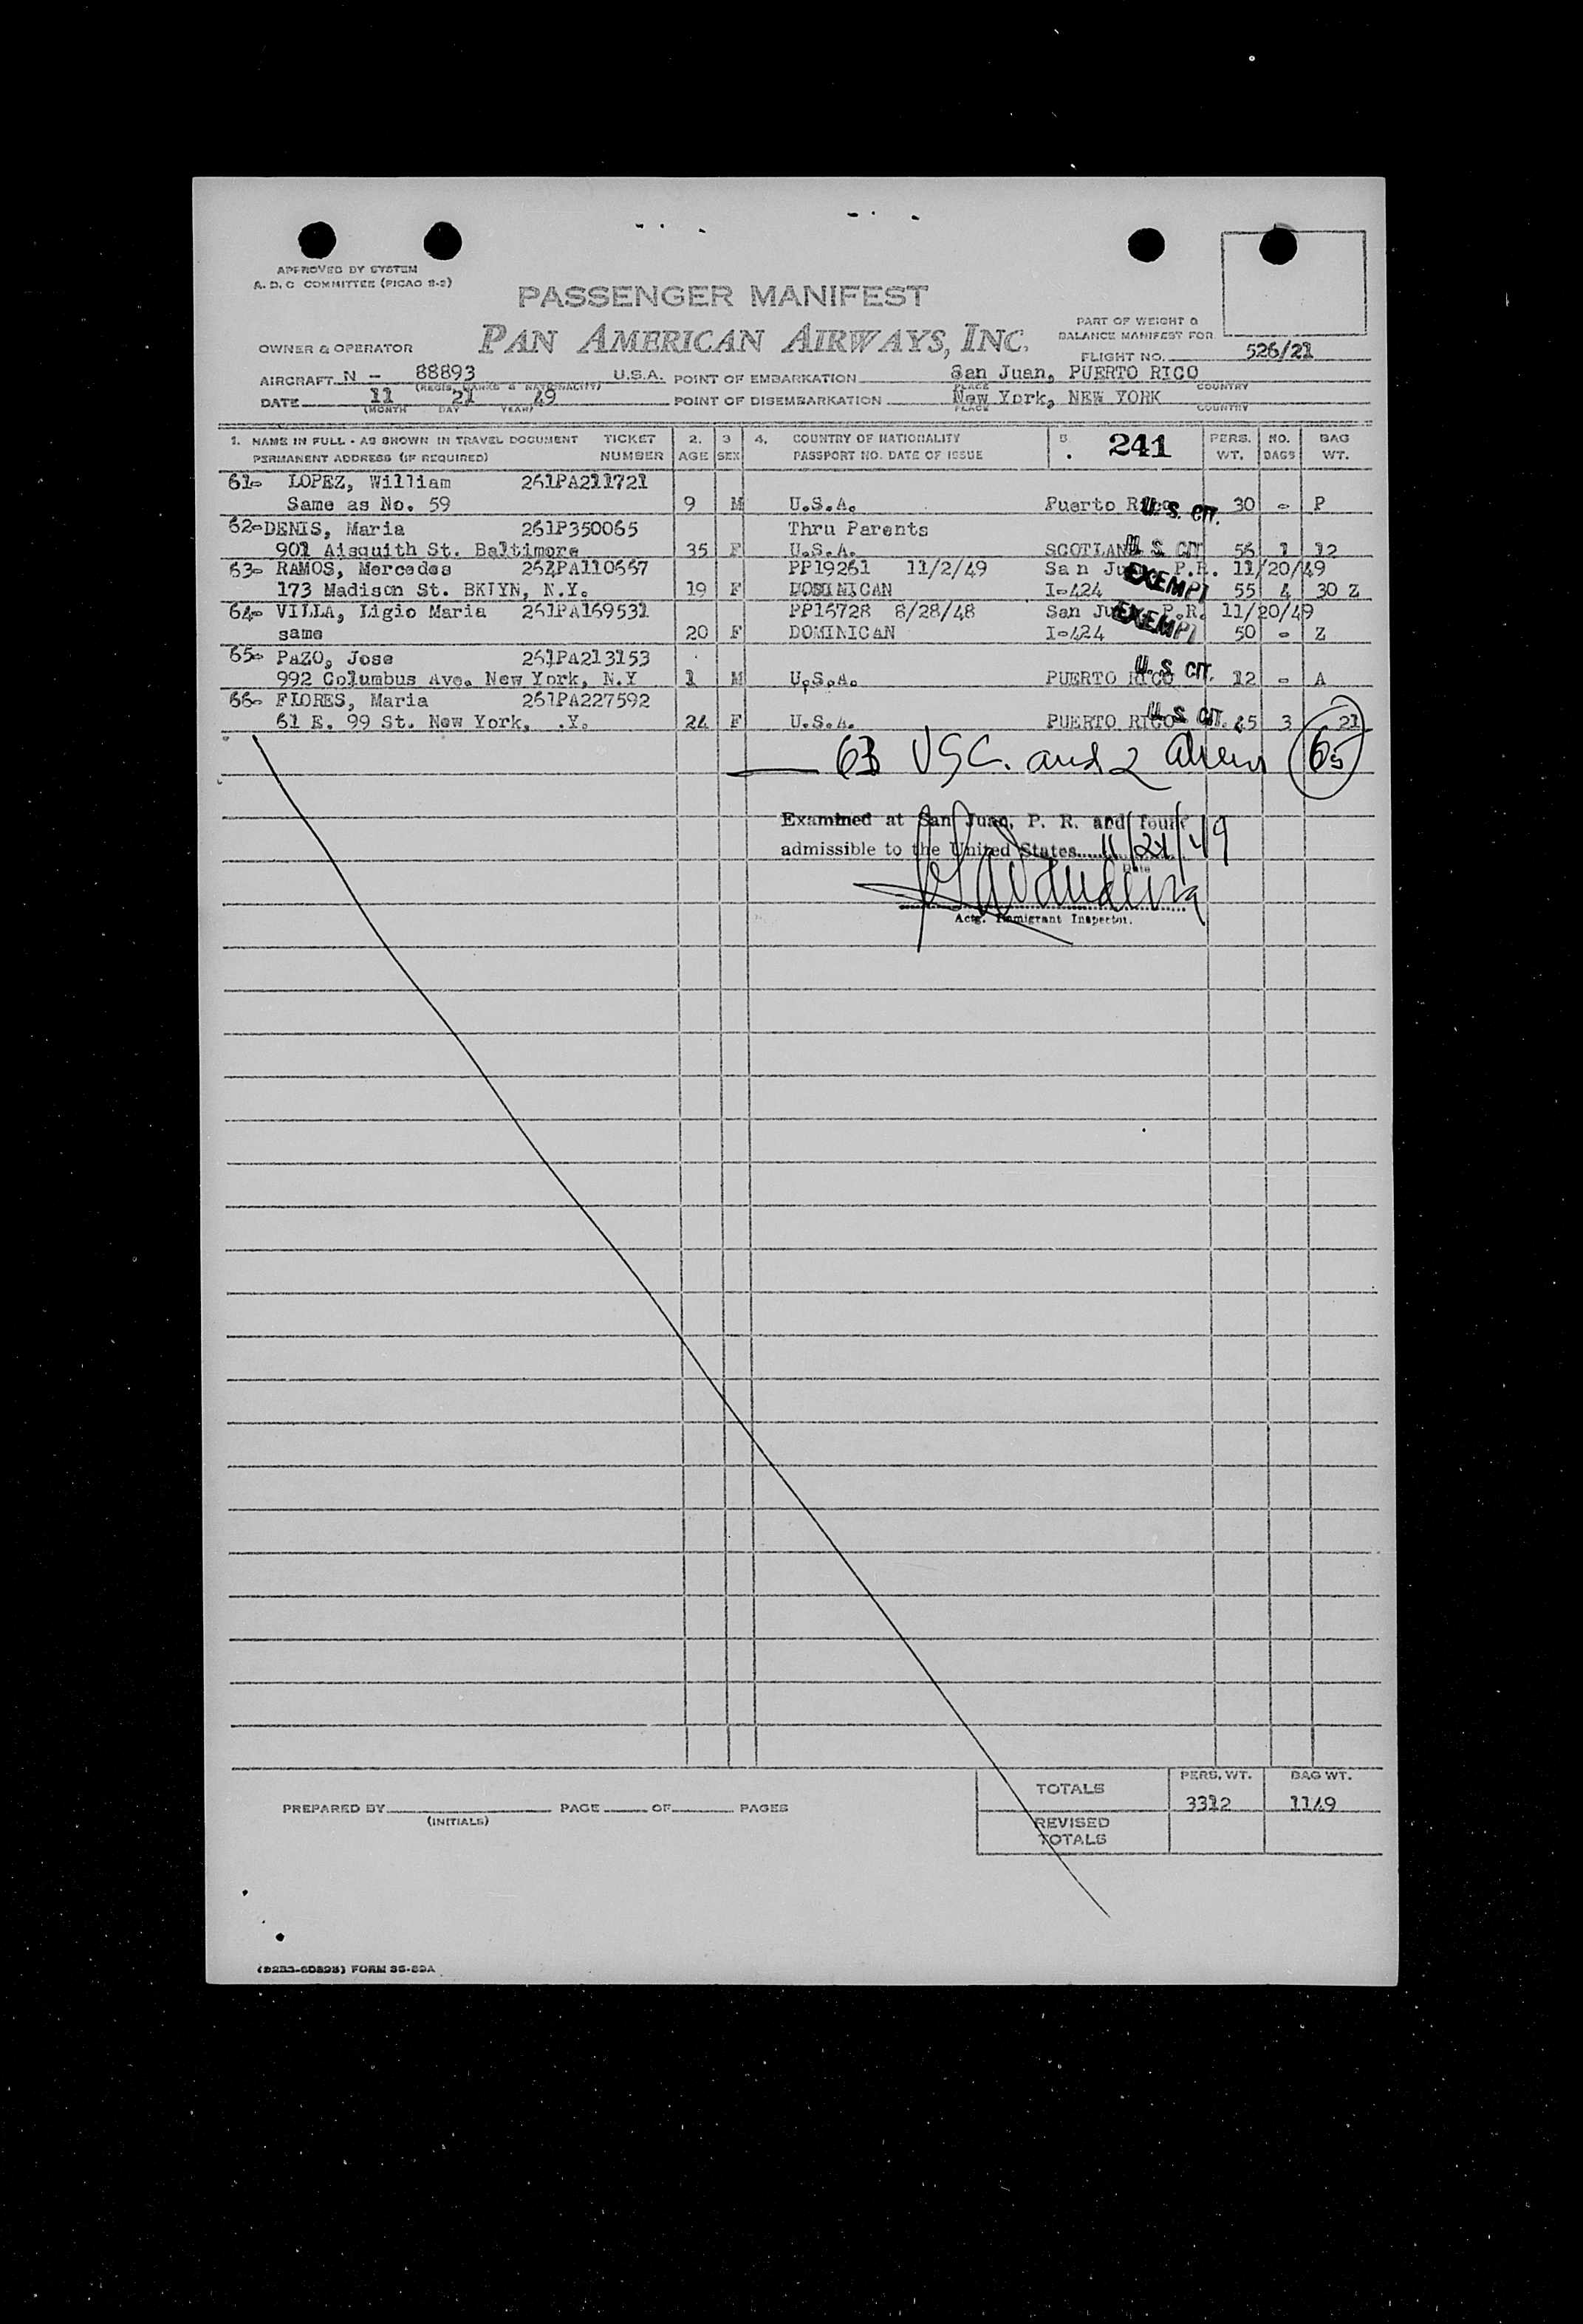 APPROVED BY SYSTEM
A. D. C COMMITTEE (PICAO 8-2)
PASSENGER MANIFEST
PAN AMERICAN AIRWAYS, INC.
PART OF WEIGHT &
BALANCE MANIFEST FOR
OWNER & OPERATOR
FLIGHT NO. 526/21
AIRCRAFT N - 88893 U.S.A. POINT OF EMBARKATION San Juan, PUERTO RICO
(REGIS. MARKS & NATIONALITY) PLACE COUNTRY
DATE 11 21 49 POINT OF DISEMBARKATION New York, NEW YORK
(MONTH DAY YEAR) PLACE COUNTRY
1. NAME IN FULL - AS SHOWN IN TRAVEL DOCUMENT TICKET 2. 3 4. COUNTRY OF NATIONALITY 5. 241 PERS. NO. BAG
PERMANENT ADDRESS (IF REQUIRED) NUMBER AGE SEX PASSPORT NO. DATE OF ISSUE WT. BAGS WT.
61- LOPEZ, William 261PA211721
Same as No. 59 9 M U.S.A. Puerto Rico U.S. CIT. 30 - P
62-DENIS, Maria 261P350065 Thru Parents
901 Aisquith St. Baltimore 35 F U.S.A. SCOTLAND U.S. CIT 56 1 12
63- RAMOS, Mercedes 261PA110667 PP19261 11/2/49 San Juan P.R. 11/20/49
173 Madison St. BKLYN, N.Y. 19 F DOMINICAN I-424 EXEMPT 55 4 30 Z
64- VILLA, Ligio Maria 261PA169531 PP16728 8/28/48 San Juan P.R. 11/20/49
same 20 F DOMINICAN I-424 EXEMPT 50 - Z
65- PAZO, Jose 261PA213153
992 Columbus Ave. New York, N.Y 1 M U.S.A. PUERTO RICO U.S. CIT. 12 - A
66- FLORES, Maria 261PA227592
61 E. 99 St. New York, .Y. 24 F U.S.A. PUERTO RICO U.S. CIT. 45 3 21
63 USC. and 2 aliens 65
Examined at San Juan, P. R. and found
admissible to the United States 11/21/49
Date
Actg. Immigrant Inspector.
TOTALS PERS. WT. BAG WT.
3312 1149
PREPARED BY PAGE OF PAGES
(INITIALS)
REVISED
TOTALS
FORM 36-89A